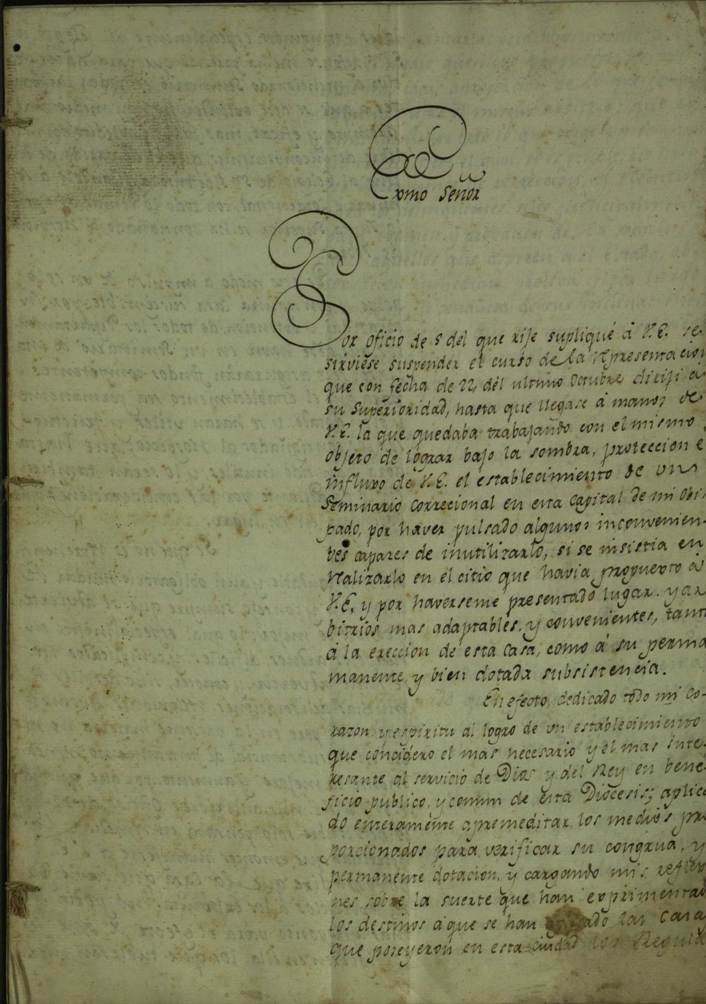 Exmo Señor
Por Oficio de 8 del que rije supliqué á V.E. se
sirviese suspender el curso de la Representacion
que con fecha de 22 del ultimo Octubre dirijí a
su Superioridad, hasta que llegase á manos de
V.E. la que quedaba trabajando con el mismo
objeto de lograr bajo la sombra, proteccion e
influxo de V.E. el establecimiento de un
Seminario Correcional en esta Capital de mi Obis
pado, por haver pulsado algunos inconvenien
tes capaces de inutilizarlo, si se insistia en
realizarlo en el citio que havia propuesto á
V.E. y por haverseme presentado lugar, y ar
bitrios mas adaptables, y convenientes, tant
á la ereccion de esta Casa, como á su perma
manente, y bien dotada subsistencia.
En efecto, dedicado todo mi Co-
razon, y espiritu al logro de un establecimiento
que concidero el mas necesario y el mas Inte
resante al servicio de Dios y del Rey en bene
ficio publico, y comun de esta Diocesis; aplica
do esmeradamente a premeditar los medios pro
porcionados para verificar su congrua, y
permanente dotacion, y cargando mis reflexio
nes sobre la suerte que han exprimentad
los destinos á que se han las Casa
que poseyeron en esta ciudad los Regula